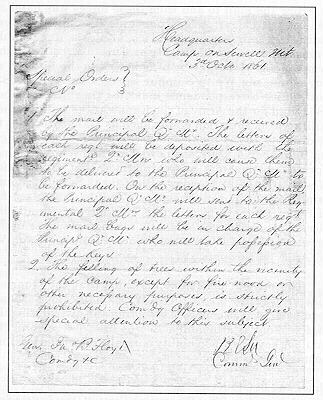 Headquarters
Camp on Sewell Mt
3d Octo 1861
Special Orders }
No }
1 The mail will be forwarded & received
by the Principal Qr Mr. The letters of
each regt will be deposited with the
regimentl Qr Mrs who will cause them
to be delivered to the Principal Qr Mr to
be forwarded. On the reception of the mail
the Principal Qr Mr will send to the Reg-
imental Qr Mrs the letters for each regt
The mail bags will be in charge of the
Principl Qr Mr who will take possession
of the keys
2. The felling of trees within the vicinity
of the camp, except for fire wood or
other necessary purposes, is strictly
prohibited. Comdg Officers will give
special attention to this subject
Genl Jn B Floyd
Comdg &c
R E Lee
Commg Genl